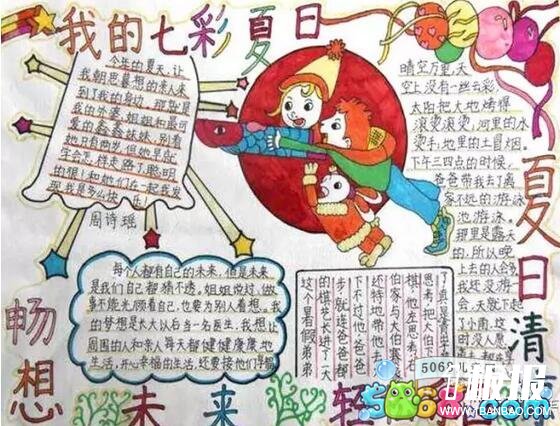 我的七彩夏日
今年的夏天,让
我朝思暮想的亲人来
到了我的身边,那就是
我的外婆、姐姐和最可
爱的鑫鑫妹妹,别看
她只有两岁,但她早就
年会怎样走路了,聪明
的很!和她们在一起我发
现我是多么快乐!
周诗瑶
晴空万里,天
空上没有一丝云彩,
太阳把大地烤得
滚烫滚烫,河里的水
烫手,地里的土冒烟。
下午三四点的时候,
爸爸带我去了离
家不远的游泳
池游泳。
那里是露天
的,所以晚
上去的人会多
我还没游
一会,天就下起
了小雨,这
时没人愿
夏日清
每个人都有自己的未来,但是未来
是我们自己都猜不透,姐姐说过,做
事不能光顾着自己,也要为别人着想。我
的梦想是大大以后当一名医生,我想让
周围的人和亲人每天都健健康康地
生活,开心幸福的生活,还要接他们
了真是青出
思考,把大伯
棋,他左思右
伯家与大伯赛
还特地带他去
下不过他,爸爸
步,就连爸爸都
的棋艺长进了一大
这个暑假弟弟
畅想未来
轻
5068
5068.com
板报
WWW.JBANBAO.COM